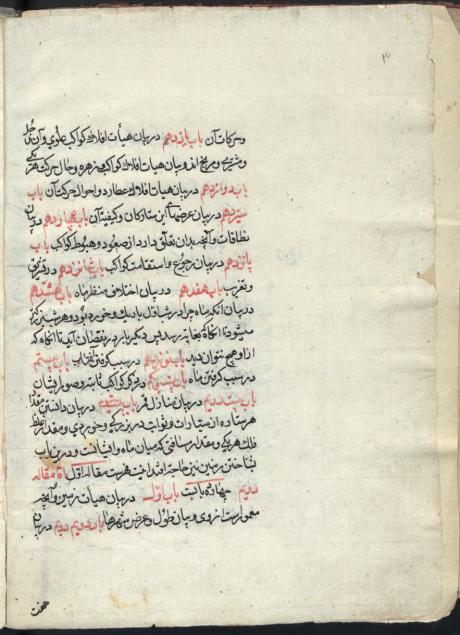 ۳
و حرکات آن باب یازدهم در بیان هیأت افلاک کواکب علوی و آن زحل
و مشتری و مریخ اند و بیان هیات افلاک کواکب زهره و حال حرکت هر یکی
باب دوازدهم در بیان هیات افلاک عطارد و احوال حرکت آن باب
سیزدهم در بیان عرضهاء این ستارکان و کیفیة آن باب چهاردهم در بیان
نطاقات و آنچه بدان تعلق دارد از صعود و هبوط کواکب باب
پانزدهم در بیان رجوع و استقامت کواکب باب شانزدهم در تشریق
و تغریب باب هفدهم در بیان اختلاف منظر ماه باب هشتدهم
در بیان آنکه ماه چرا در شب اول باریک و خورد بود و هر شب بزرکتر
میشود تا آنکاه که بغایة رسد پس دیکر بار در نقصان آید تا آنکاه که
از او هیچ نتوان دید باب نوزدهم در سبب کرفتن آفتاب باب بیستم
در سبب کرفتن ماه باب بیست و یکم در ذکر کواکب ثابته و صور ایشان
باب بیست و دویم در بیان منازل قمر باب بیست و سیم در بیان دانستن مقدار
هر ستاره از سیارات و ثوابت در بزرکی و خوردی و مقدار غلظ
فلک هر یکی و مقدار مسافتی که میان ماه و آفتابست و در این باب
شناختن زمین نیز حاجت افتد اینست فهرست مقاله اول اما مقاله
دویم چهارده بابست باب اول در بیان هیات زمین و آنچه
معمور است از وی و بیان طول و عرض شهرها باب دویم در بیان
هفت